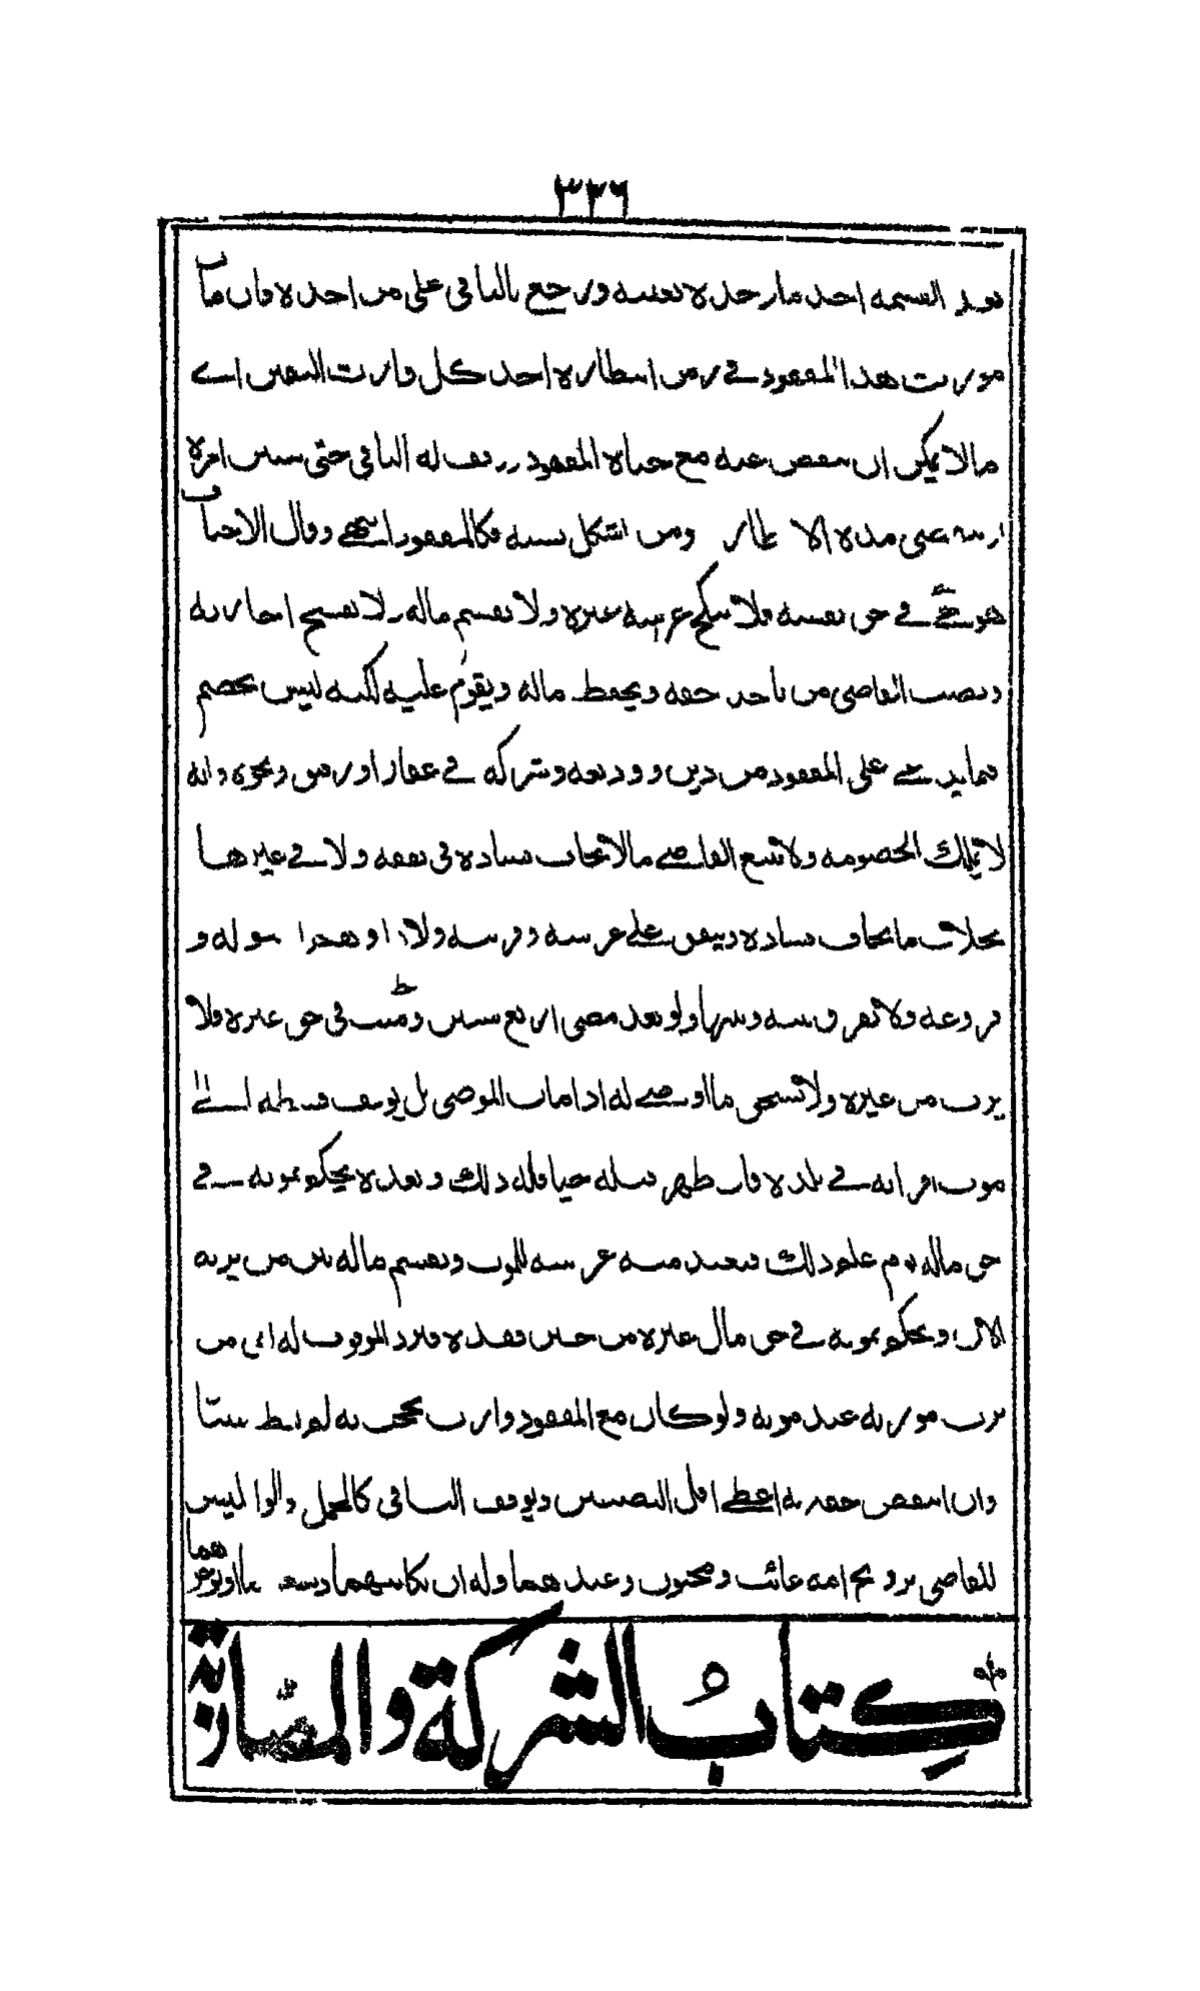 ٣٣٦
بعد القسمة اخذ ما وجده بعينه ورجع بالباقي على من اخذه فان مات
مورث هذا المفقود في زمن انتظاره اخذ كل وارث اليقين اي
ما لا يمكن ان ينقص عنه مع حياة المفقود ووقف له الباقي حتى يتبين امره
او تنقضي مدة الانتظار ومن اشكل نسبه فكالمفقود انتهى وقال الاحناف
هو حي في حق نفسه فلا ينكح عرسه غيره ولا يقسم ماله ولا تفسخ اجارته
ونصب القاضي من ياخذ حقه ويحفظ ماله ويقوم عليه لكنه ليس بخصم
فيما يدعى على المفقود من دين ووديعة وشركة في عقار او رقيق ونحوه وانه
لا يملك الخصومة ولا يبيع القاضي مالا يخاف فساده في نفقة ولا في غيرها
بخلاف ما يخاف فساده وينفق على عرسه وقريبه ولادا وهم اصوله و
فروعه ولا يفرق بينه وبينها ولو بعد مضي اربع سنين وميت في حق غيره فلا
يرث من غيره ولا يستحق ما اوصى له اذا مات الموصي بل يوقف قسطه الى
موت اقرانه في بلده فان ظهر قبله حيا فله ذلك وبعده يحكم بموته في
حق ماله يوم علم ذلك فتعتد منه عرسه للموت ويقسم ماله بين من يرثه
الآن ويحكم بموته في حق مال غيره من حين فقده فيرد الموقوف له الى من
يرث مورثه عند موته ولو كان مع المفقود وارث يحجب به لم يعط شيئا
وان انتقص حقه به اعطي اقل النصيبين ويوقف الباقي كالحمل وقالوا ليس
للقاضي تزويج امة غائب ومجنون وعبدهما وله ان يكاتبهما ويبيعهما
كتاب الشركة والمضاربة